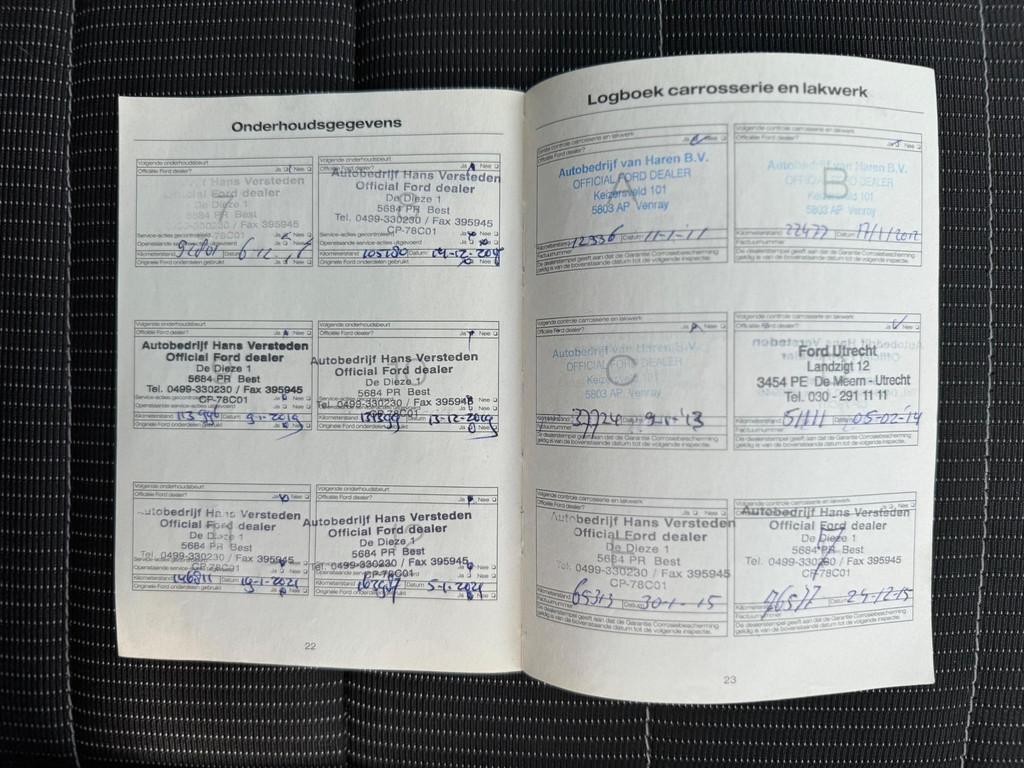 Onderhoudsgegevens
Volgende onderhoudsbeurt
Officiële Ford dealer? Ja Nee
Hans Versteden
Official Ford dealer
De Dieze 1
5684 PR Best
Tel. 0499-330230 / Fax 395945
CP-78C01
Service-acties gecontroleerd
Openstaande service-acties uitgevoerd
Kilometerstand Datum 6-12
Originele Ford onderdelen gebruikt Ja Nee
Volgende onderhoudsbeurt
Officiële Ford dealer? Ja Nee
Autobedrijf Hans Versteden
Official Ford dealer
De Dieze 1
5684 PR Best
Tel. 0499-330230 / Fax 395945
CP-78C01
Service-acties gecontroleerd Nee
Openstaande service-acties uitgevoerd Nee
Kilometerstand 105180 Datum 14-12
Originele Ford onderdelen gebruikt Nee
Volgende onderhoudsbeurt
Officiële Ford dealer? Ja Nee
Autobedrijf Hans Versteden
Official Ford dealer
De Dieze 1
5684 PR Best
Tel. 0499-330230 / Fax 395945
CP-78C01
Datum 9-1-2019
Originele Ford onderdelen Nee
Volgende onderhoudsbeurt
Officiële Ford dealer? Ja Nee
Autobedrijf Hans Versteden
Official Ford dealer
De Dieze 1
5684 PR Best
Tel. 0499-330230 / Fax 395945
CP-78C01
Kilometerstand Datum 13-12-2019
Originele Ford onderdelen gebruikt Nee
Volgende onderhoudsbeurt
Officiële Ford dealer? Nee
Autobedrijf Hans Versteden
Official Ford dealer
De Dieze 1
5684 PR Best
Tel. 0499-330230 / Fax 395945
CP-78C01
Kilometerstand 146811 Datum 14-1-2021
Originele Ford onderdelen gebruikt Nee
Volgende onderhoudsbeurt
Officiële Ford dealer? Nee
Autobedrijf Hans Versteden
Official Ford dealer
De Dieze 1
5684 PR Best
Tel. 0499-330230 / Fax 395945
CP-78C01
Kilometerstand Datum
Originele Ford onderdelen gebruikt Nee
22
Logboek carrosserie en lakwerk
Volgende controle carrosserie en lakwerk
Officiële Ford dealer? Ja Nee
A
Autobedrijf van Haren B.V.
OFFICIAL FORD DEALER
Keizersveld 101
5803 AP Venray
Kilometerstand 12336 Datum 11-1-11
Factuurnummer
De dealerstempel geeft aan dat de Garantie Corrosiebescherming
geldig is van de bovenstaande datum tot de volgende inspectie.
Volgende controle carrosserie en lakwerk
Officiële Ford dealer? Nee
B
Autobedrijf van Haren B.V.
OFFICIAL FORD DEALER
Keizersveld 101
5803 AP Venray
Kilometerstand 22477 Datum 17/1/2012
Factuurnummer
De dealerstempel geeft aan dat de Garantie Corrosiebescherming
geldig is van de bovenstaande datum tot de volgende inspectie.
Volgende controle carrosserie en lakwerk
Officiële Ford dealer? Ja Nee
C
Autobedrijf van Haren B.V.
OFFICIAL FORD DEALER
Keizersveld 101
5803 AP Venray
Kilometerstand 37724 Datum 9-1-'13
Factuurnummer
De dealerstempel geeft aan dat de Garantie Corrosiebescherming
geldig is van de bovenstaande datum tot de volgende inspectie.
Volgende controle carrosserie en lakwerk
Officiële Ford dealer? Ja Nee
Ford Utrecht
Landzigt 12
3454 PE De Meern - Utrecht
Tel. 030 - 291 11 11
Kilometerstand 51111 Datum 05-02-'14
Factuurnummer
De dealerstempel geeft aan dat de Garantie Corrosiebescherming
geldig is van de bovenstaande datum tot de volgende inspectie.
Volgende controle carrosserie en lakwerk
Officiële Ford dealer? Ja Nee
Autobedrijf Hans Versteden
Official Ford dealer
De Dieze 1
5684 PR Best
Tel. 0499-330230 / Fax 395945
CP-78C01
Kilometerstand 65313 Datum 30-1-15
Factuurnummer
De dealerstempel geeft aan dat de Garantie Corrosiebescherming
geldig is van de bovenstaande datum tot de volgende inspectie.
Volgende controle carrosserie en lakwerk
Officiële Ford dealer? Ja Nee
Autobedrijf Hans Versteden
Official Ford dealer
De Dieze 1
5684 PR Best
Tel. 0499-330230 / Fax 395945
CP-78C01
Kilometerstand 76577 Datum 24-12-15
Factuurnummer
De dealerstempel geeft aan dat de Garantie Corrosiebescherming
geldig is van de bovenstaande datum tot de volgende inspectie.
23